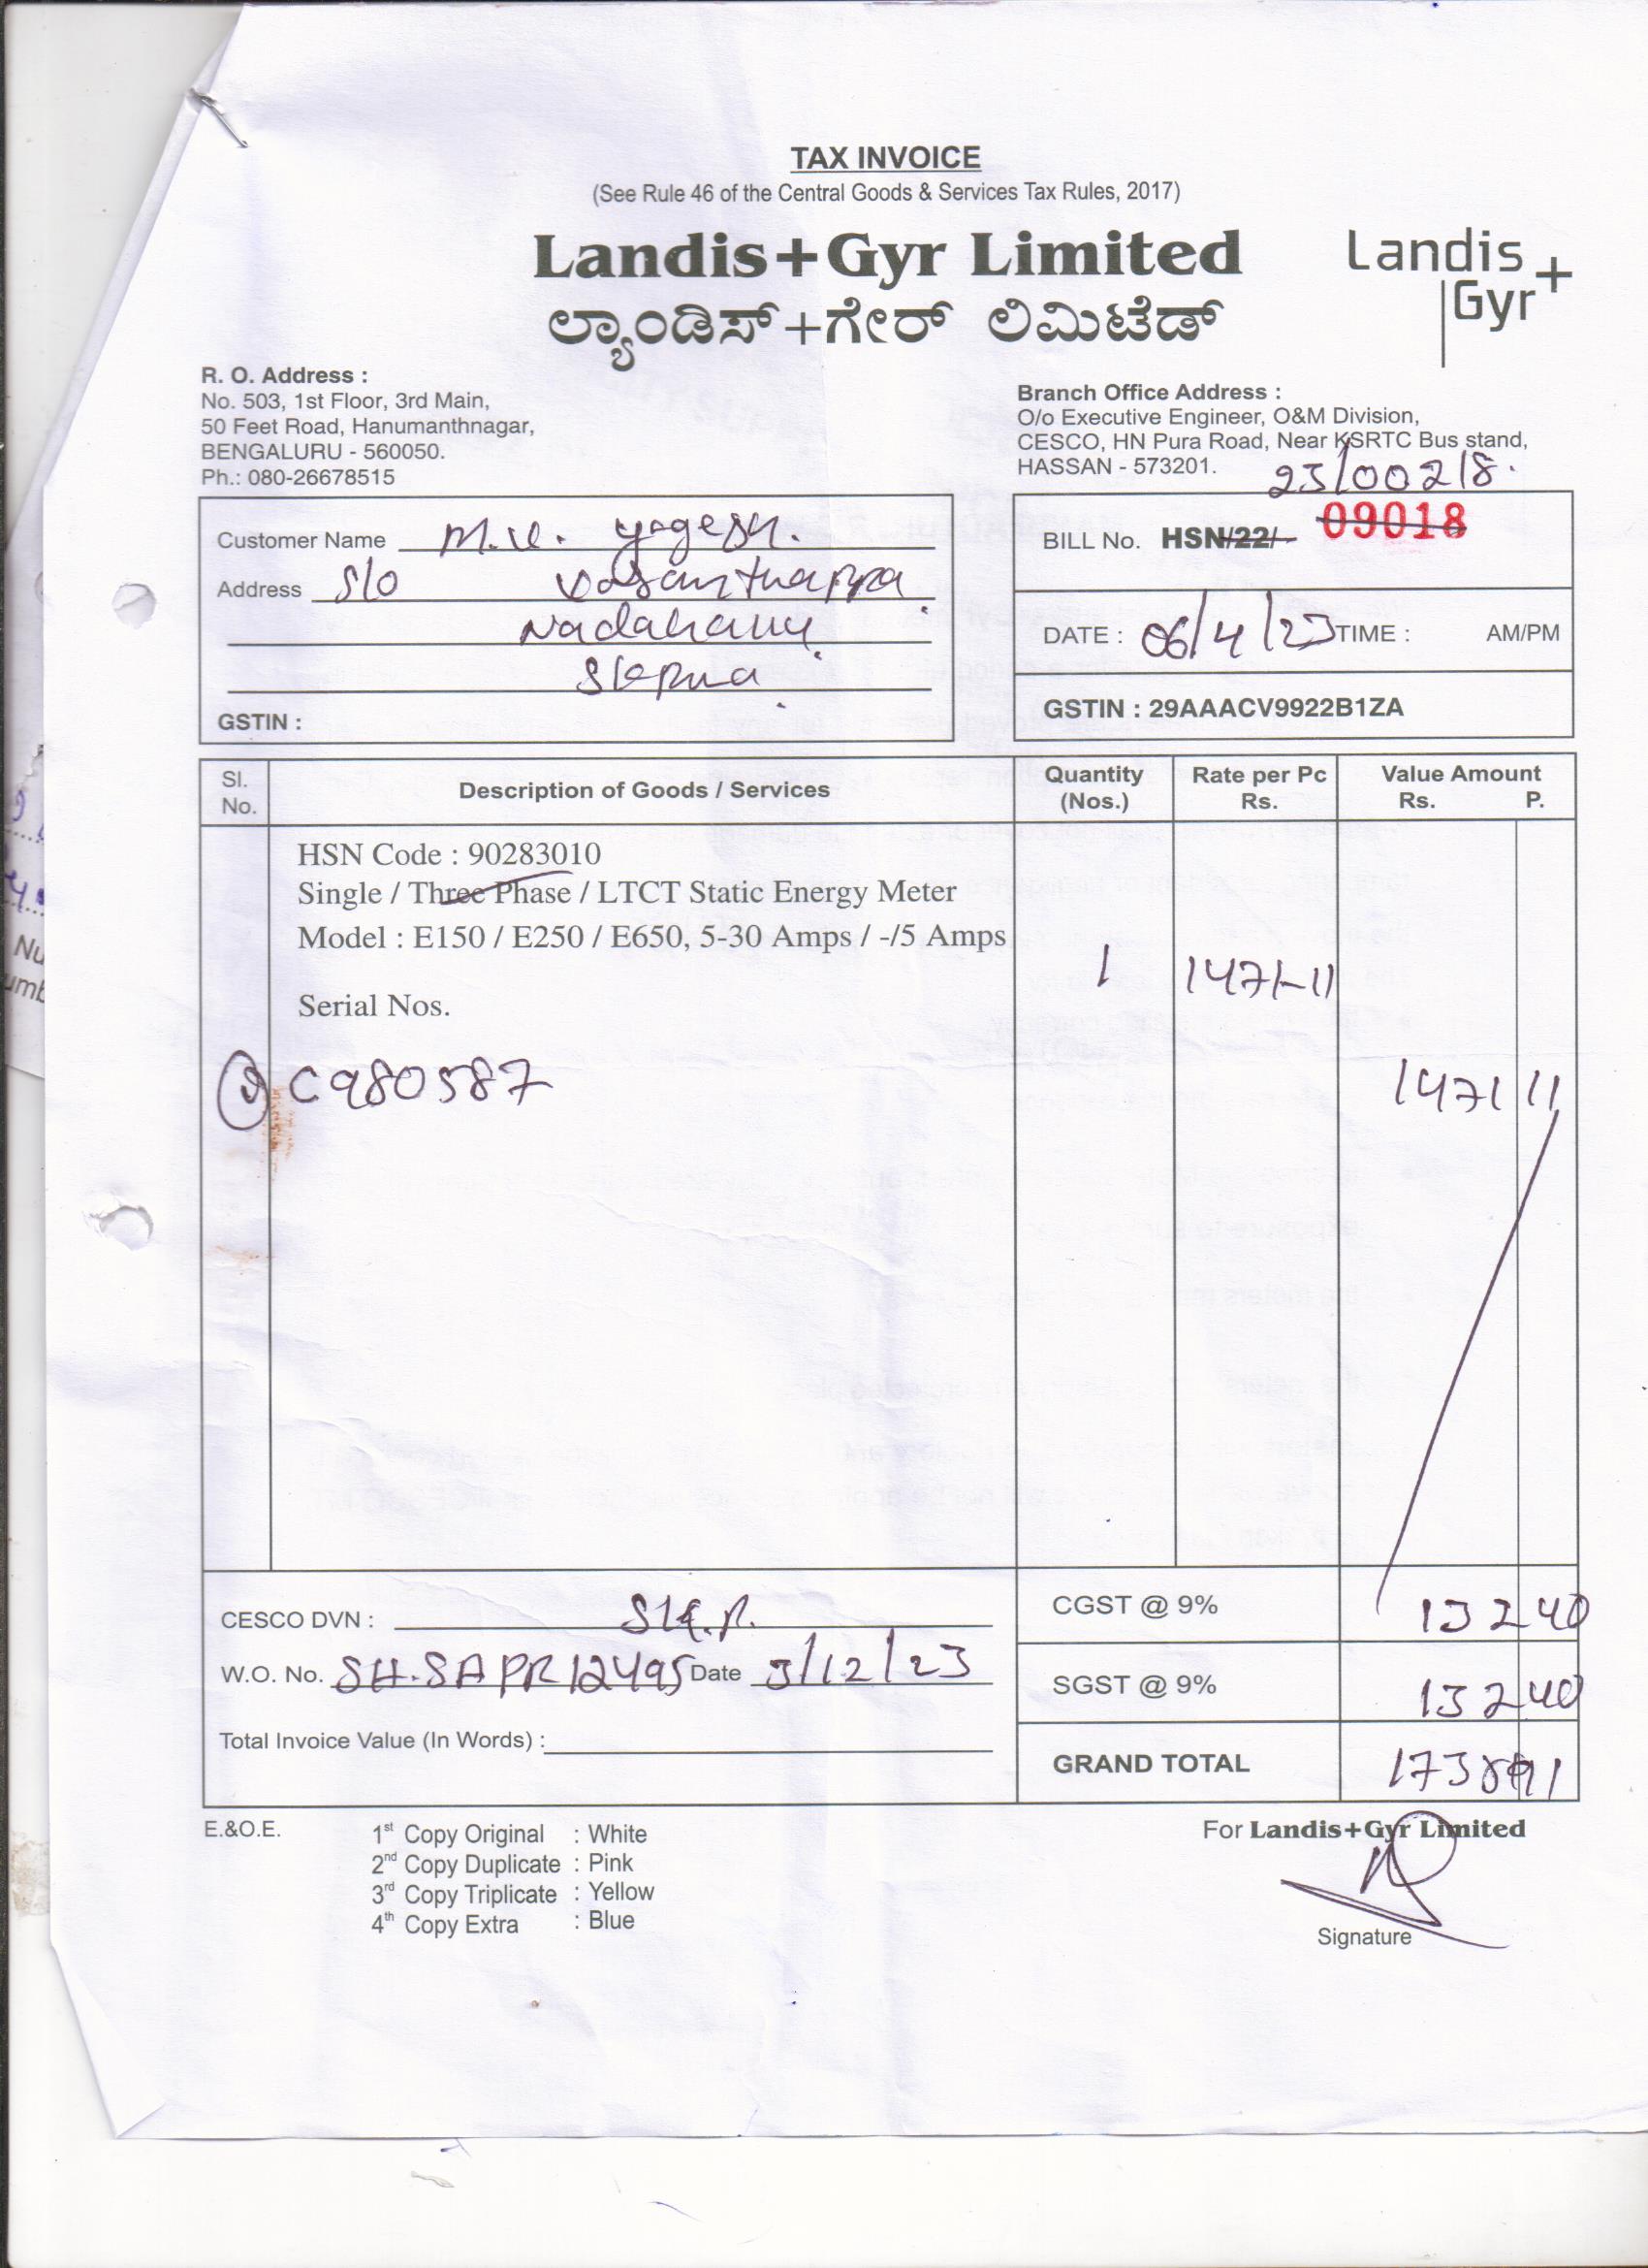 TAX INVOICE
(See Rule 46 of the Central Goods & Services Tax Rules, 2017)
Landis+Gyr Limited
Landis+
Gyr
ಲ್ಯಾಂಡಿಸ್+ಗೇರ್ ಲಿಮಿಟೆಡ್
R. O. Address :
No. 503, 1st Floor, 3rd Main,
50 Feet Road, Hanumanthnagar,
BENGALURU - 560050.
Ph.: 080-26678515
Branch Office Address :
O/o Executive Engineer, O&M Division,
CESCO, HN Pura Road, Near KSRTC Bus stand,
HASSAN - 573201.
23/00218.
Customer Name M.V. Yogesh.
Address S/O Vasanthappa
GSTIN :
BILL No. HSN/22/- 09018
DATE : 06/4/23 TIME : AM/PM
GSTIN : 29AAACV9922B1ZA
Sl. No. Description of Goods / Services Quantity (Nos.) Rate per Pc Rs. Value Amount Rs. P.
HSN Code : 90283010
Single / Three Phase / LTCT Static Energy Meter
Model : E150 / E250 / E650, 5-30 Amps / -/5 Amps
1 1471-11
Serial Nos.
C980587 1471 11
CESCO DVN : CGST @ 9% 132 40
W.O. No. SH.SAPR12495 Date 3/12/23 SGST @ 9% 132 40
Total Invoice Value (In Words) : GRAND TOTAL 1735 91
E.&O.E.
1st Copy Original : White
2nd Copy Duplicate : Pink
3rd Copy Triplicate : Yellow
4th Copy Extra : Blue
For Landis+Gyr Limited
Signature